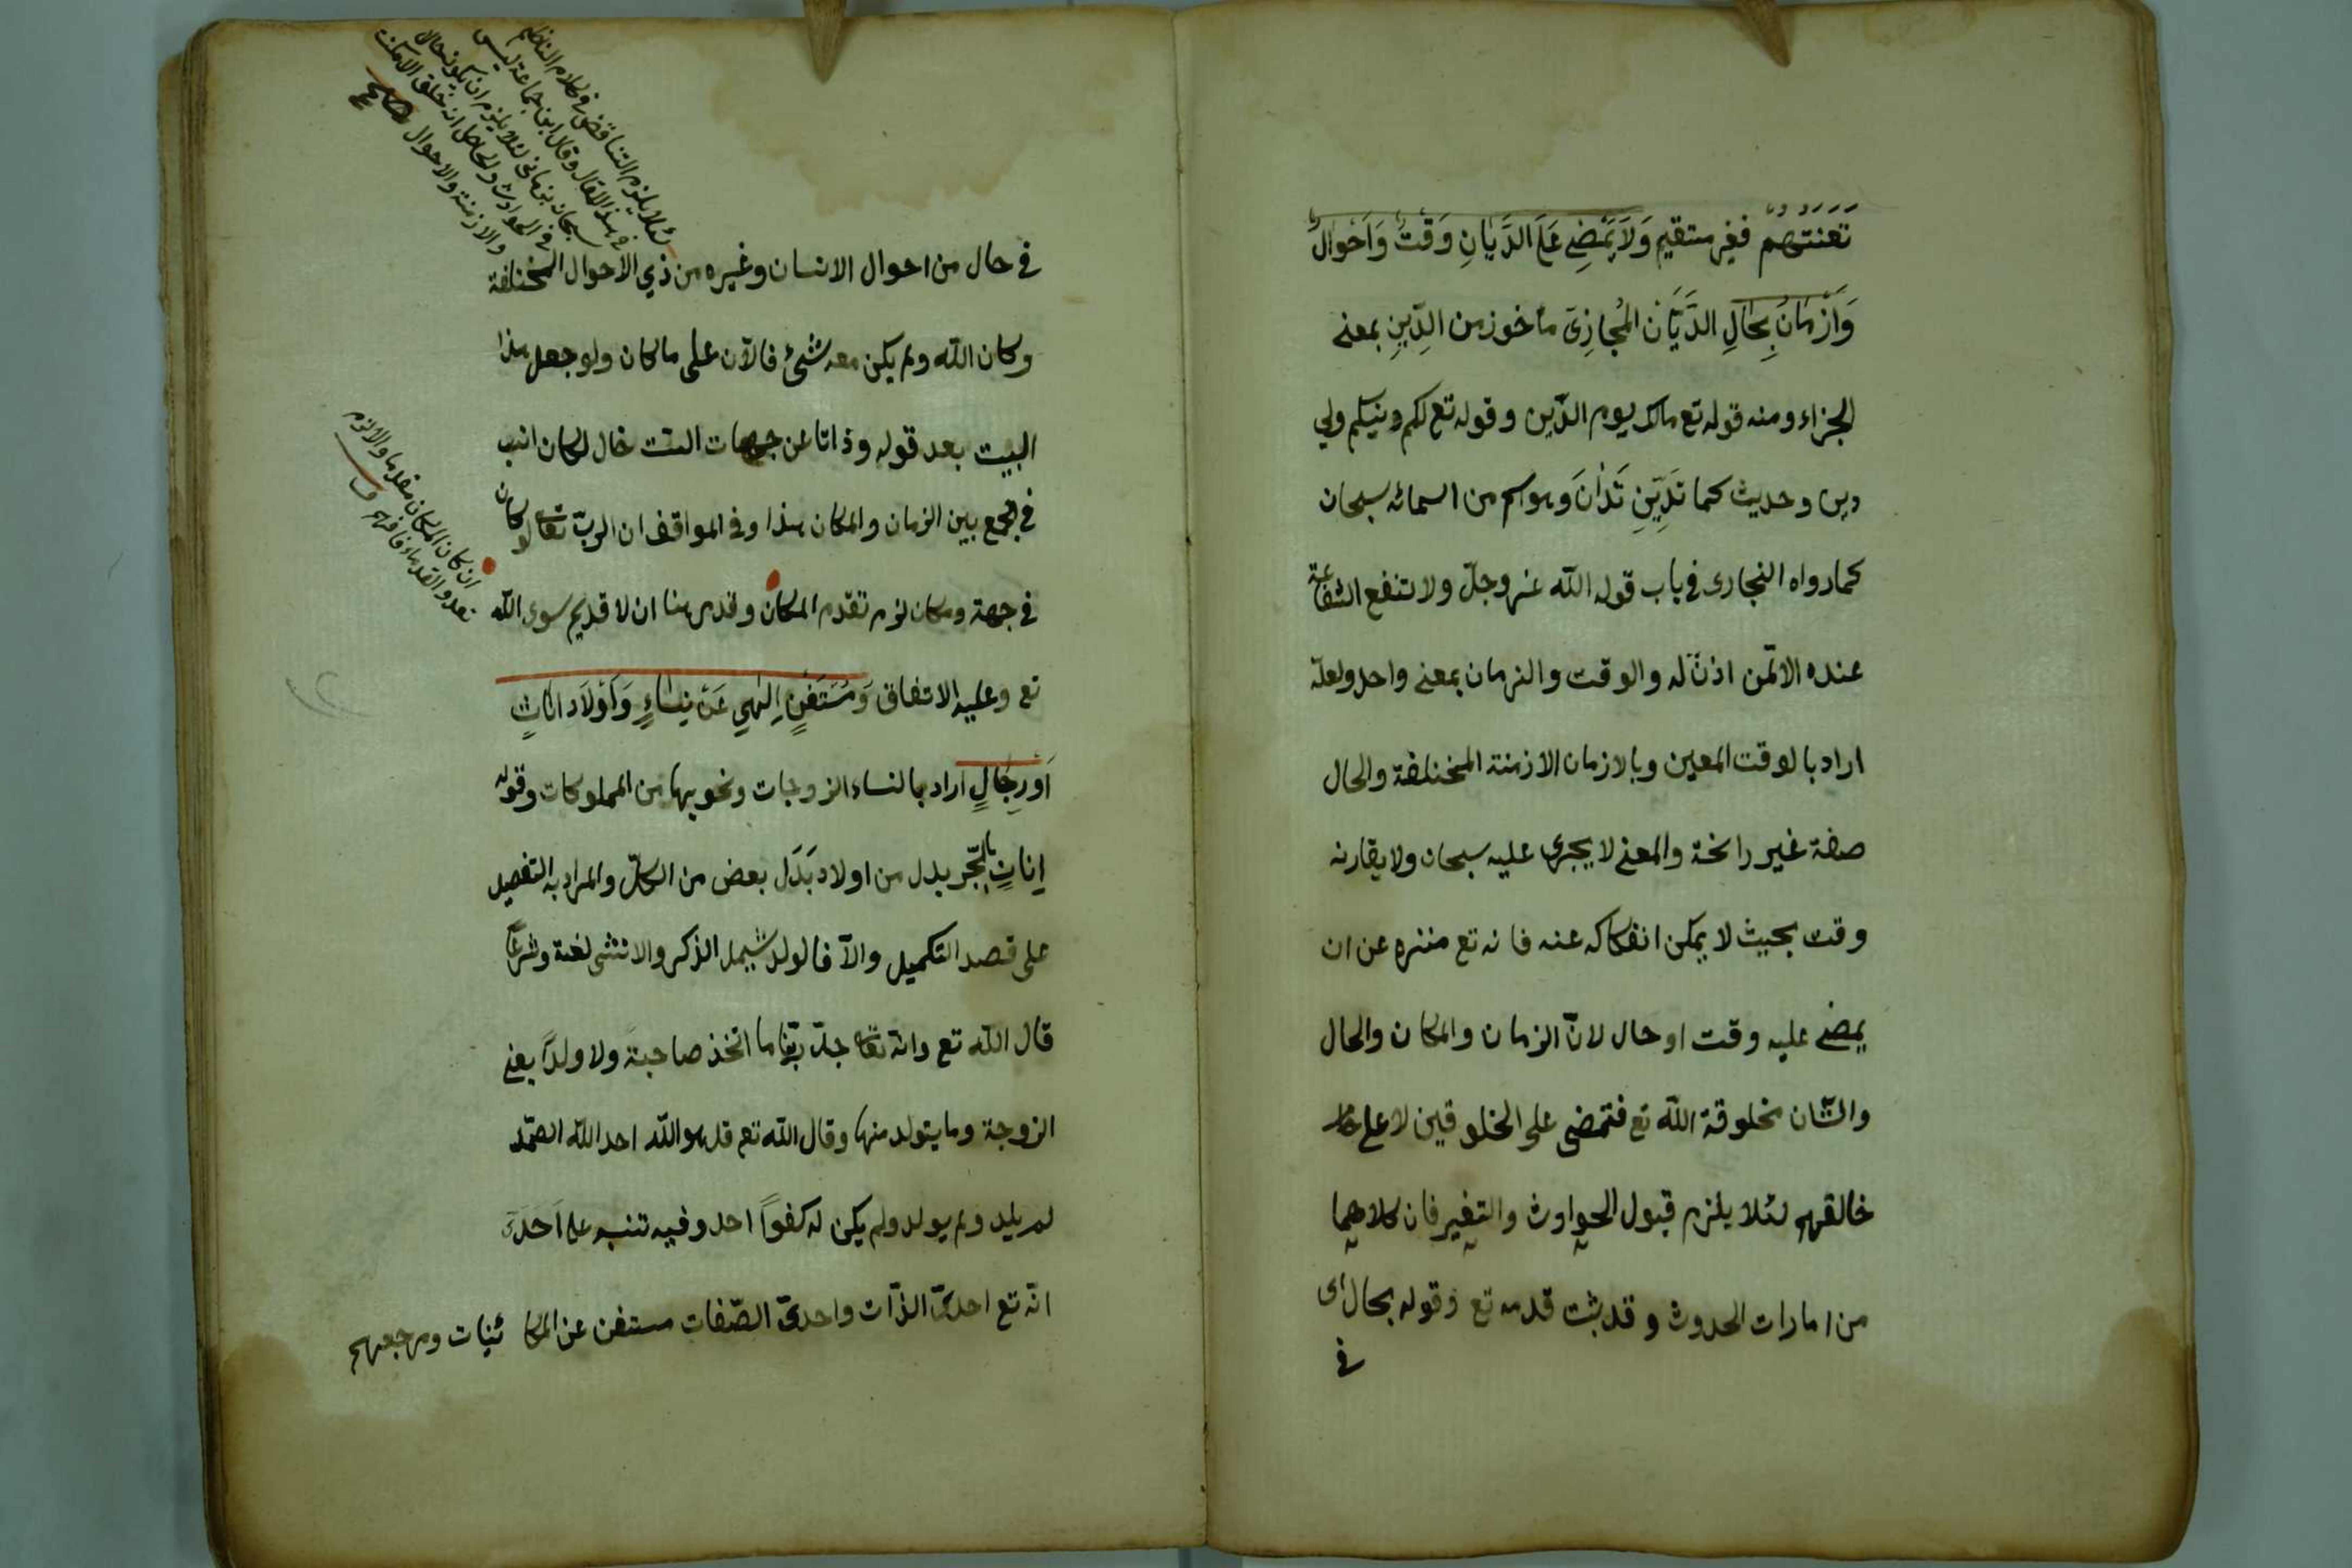 تعنتهم فغير مستقيم وَلَا يَمْضِي عَلَى الدَّيَّانِ وَقْتٌ وَاَحْوَالٌ
وَاَزْمَانٌ بِحَالِ الدَّيَّان المُجازِى مأخوذ من الدِّينِ بمعنے
الجزاء ومنه قوله تع مالك يوم الدّين وقوله تع لكم دينكم ولي
دين وحديث كما تَدِينِ تُدَانُ وهو اسم من اسمائه سبحان
كما رواه البخارى فى باب قوله الله عزوجلّ ولا تنفع الشفاعة
عنده الا لمن اذن له والوقت والزمان بمعنے واحد ولعلّه
اراد بالوقت المعين وبالازمان الازمنة المختلفة والحال
صفة غير راسخة والمعنے لا يجرى عليه سبحان ولا يقارنه
وقت بحيث لا يمكن انفكاكه عنه فانه تع منزه عن ان
يمضے عليه وقت او حال لانّ الزمان والمكان والحال
والشّان مخلوقة الله تع فتمضى على المخلوقين لا على
خالقهم لئلا يلزم قبول الحوادث والتغير فان كلاهما
من امارات الحدوث وقد ثبت قدمه تع وقوله بحال اى
فى
فى حال من احوال الانسان وغيره من ذي الاحوال المختلفة
وكان الله ولم يكن معه شئ فالآن على ما كان ولو جعل هذا
البيت بعد قوله وذاتا عن جهات الست خال لكان انسب
فى الجمع بين الزمان والمكان هذا وفى المواقف ان الربّ تعالى لو كان
فى جهة ومكان لزم تقدم المكان وقد مر هنا ان لا قديم سوى الله
تع وعليه الاتفاق وَمُسْتَغْنٍ اِلٰهِي عَنْ نِسَاءٍ وَاَوْلَاد اناثٍ
اَوْ رِجَالٍ اراد بالنساء الزوجات ونحوها من المملوكات وقوله
اِناثٍ بالجّر بدل من اولاد بَدَل بعض من الكلّ والمراد به التفصيل
على قصد التكميل والّا فالولد يشمل الذكر والانثى لغة وشرعًا
قال الله تع وانّه تعالى جدّ ربّنا ما اتخذ صاحبة ولا ولدًا يعنے
الزوجة وما يتولد منها وقال الله تع قل هو الله احد الله الصمد
لم يلد ولم يولد ولم يكن له كفواً احد وفيه تنبيه على احد
انّه تع احدىّ الذّات واحدىّ الصّفات مستغن عن الكائنات ومرجعهم
لئلا يلزم التناقض فى كلام الناظم
فى هذا المقال وقال ابن جماعة ليس
سبحان بزمانى لئلا يلزم ان يكون محلا
فى الحوادث والحاصل انه خلق الامكنة
والازمنة والاحوال صح
ان كان المكان مقدما والا لزم
تعدد القدماء فافهم